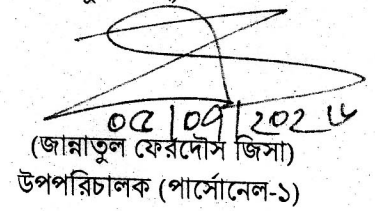 ০৫|০৭|২০২৬
(জান্নাতুল ফেরদৌস জিসা)
উপপরিচালক (পার্সোনেল-১)